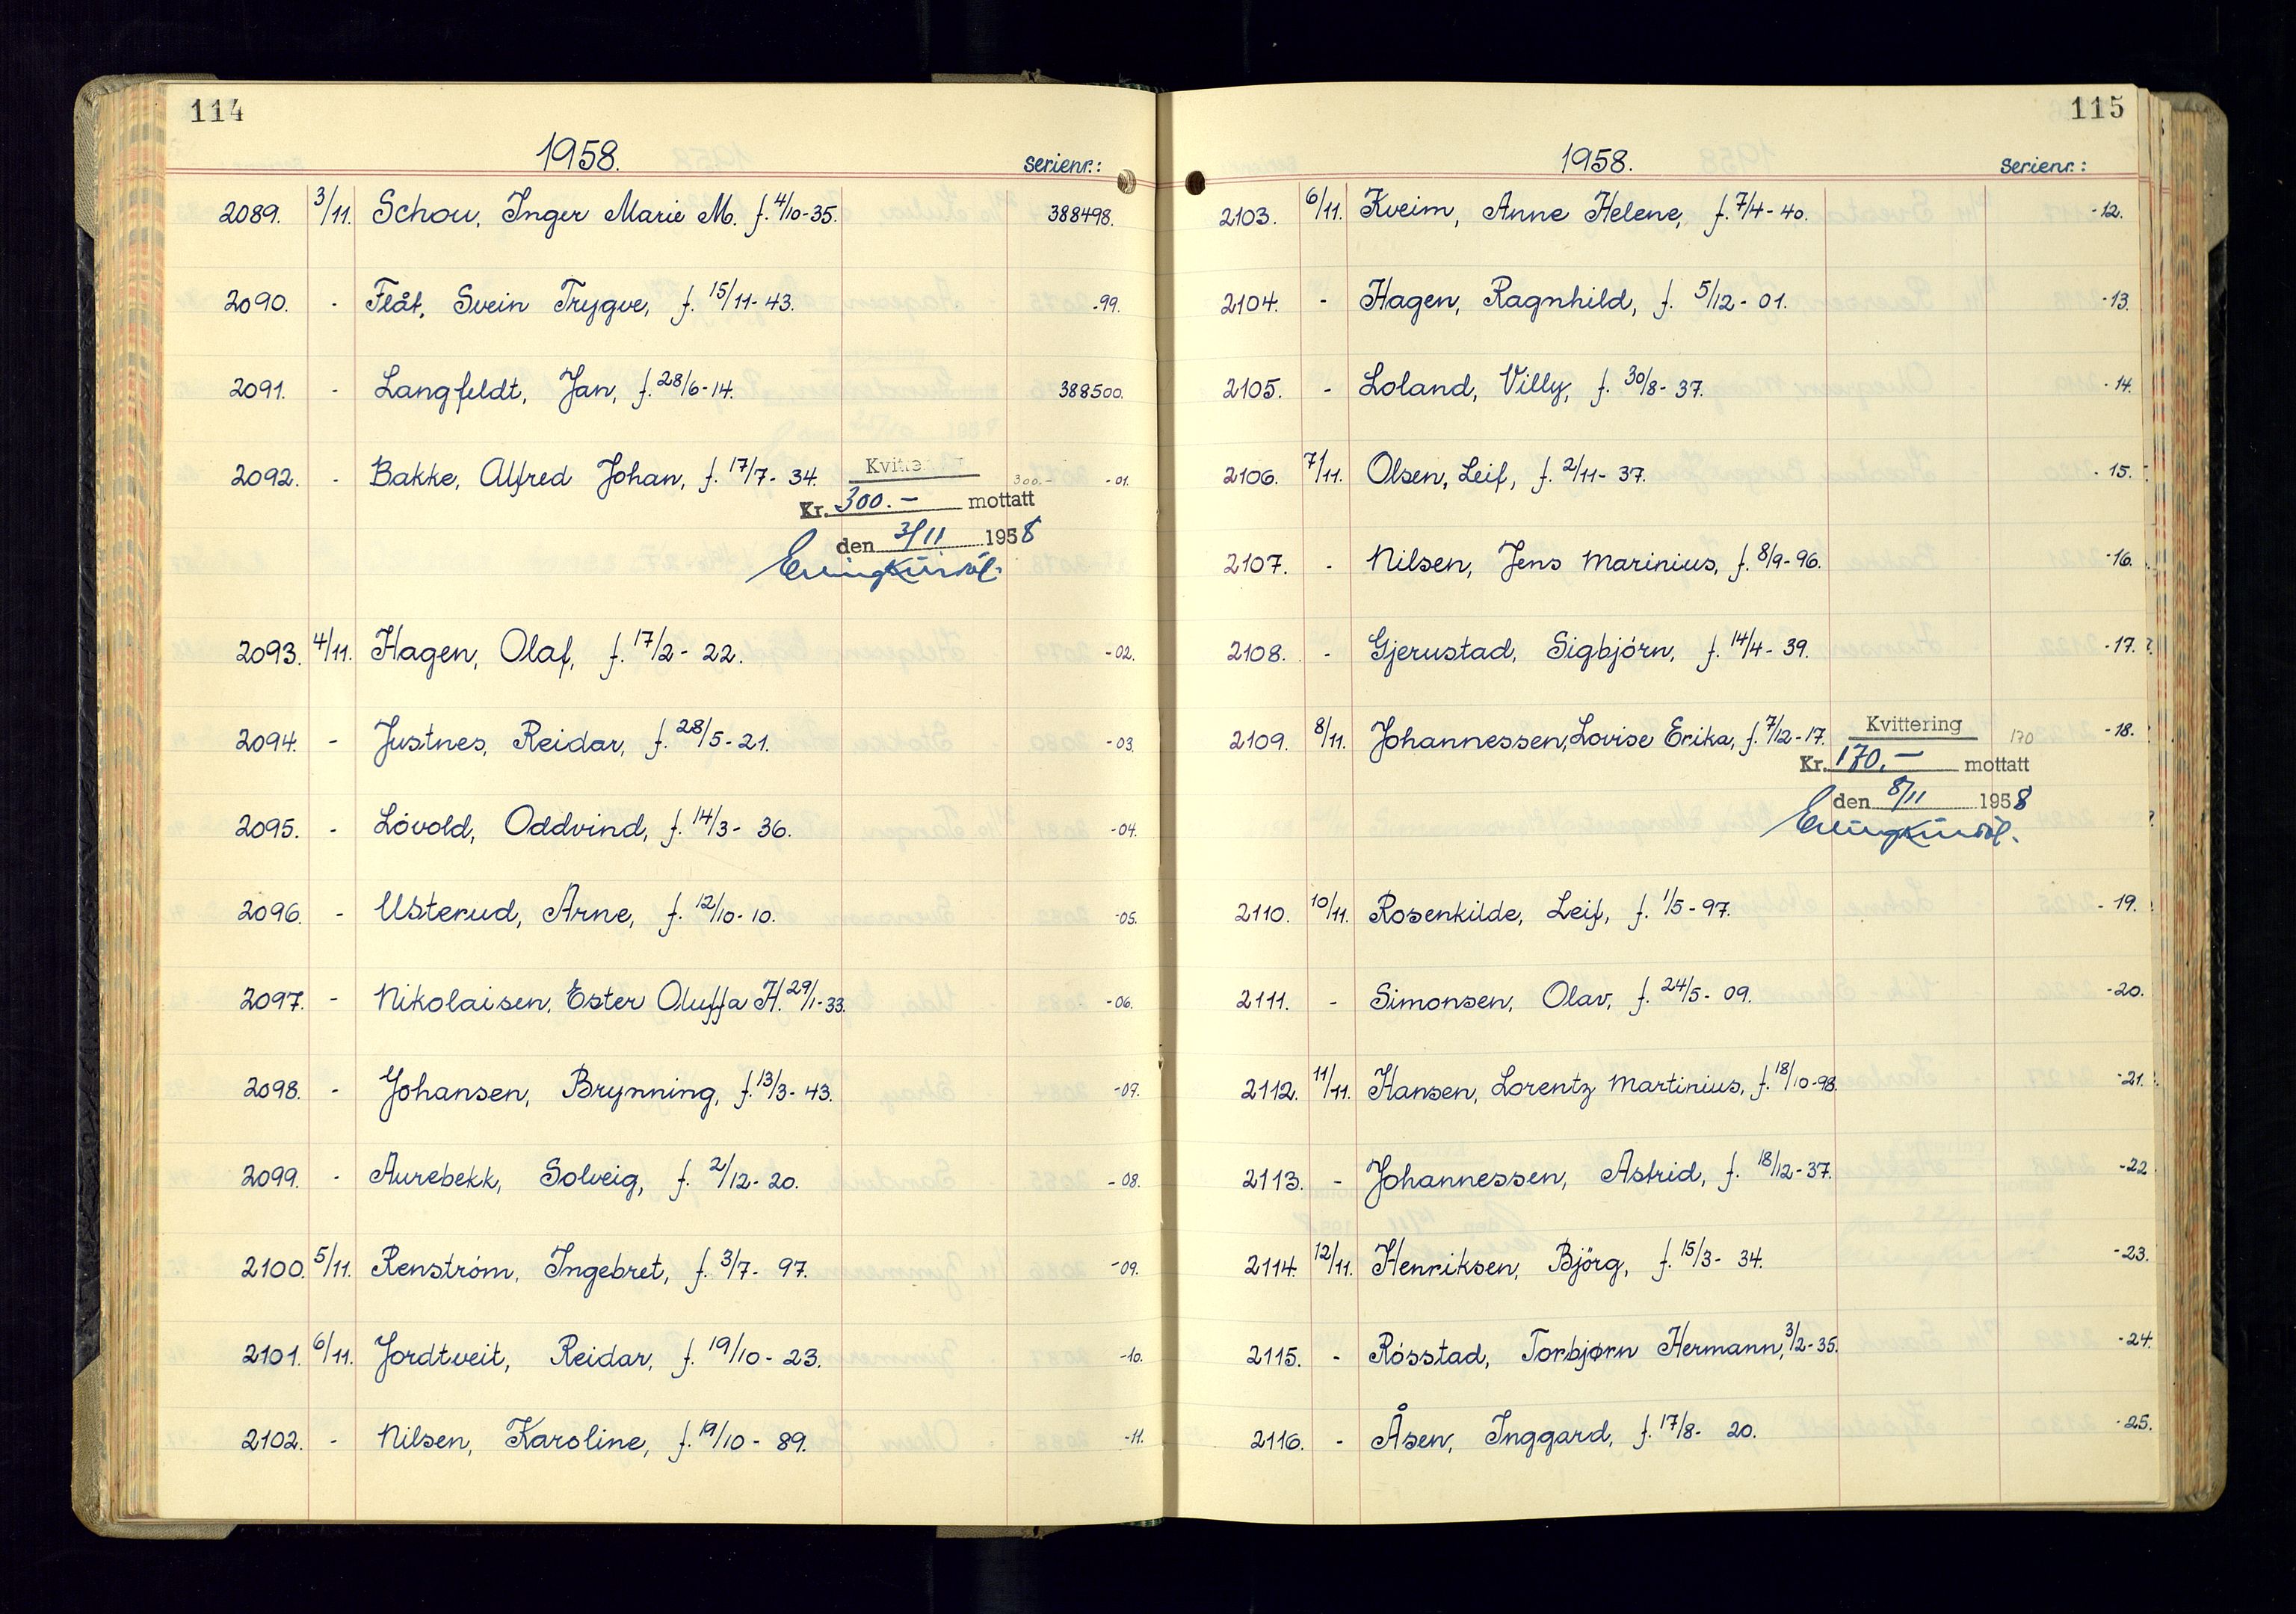 114
1958.
Serienr.:
2089. 3/11. Schou, Inger Marie M. f. 4/10-35. 388498.
2090. - Flåt, Svein Trygve, f. 15/11-43. -99.
2091. - Langfeldt, Jan, f. 28/6-14. 388500.
2092. - Bakke, Alfred Johan, f. 17/7-34. Kvittering 300.- -01.
Kr. 300.- mottatt
den 3/11 1958
2093. 4/11. Hagen, Olaf, f. 17/2-22. -02.
2094. - Justnes, Reidar, f. 28/5-21. -03.
2095. - Lóvold, Oddvind, f. 14/3-36. -04.
2096. - Usterud, Arne, f. 12/10-10. -05.
2097. - Nikolaisen, Ester Oluffa H. 29/1-33. -06.
2098. - Johansen, Brynning, f. 13/3-43. -07.
2099. - Aurebekk, Solveig, f. 2/12-20. -08.
2100. 5/11. Renstróm, Ingebret, f. 3/7-97. -09.
2101. 6/11. Jordtveit, Reidar, f. 19/10-23. -10.
2102. - Nilsen, Karoline, f. 19/10-89. -11.
115
1958.
Serienr.:
2103. 6/11. Kveim, Anne Helene, f. 7/4-40. -12.
2104. - Hagen, Ragnhild, f. 5/12-01. -13.
2105. - Loland, Villy, f. 30/8-37. -14.
2106. 7/11. Olsen, Leif, f. 2/11-37. -15.
2107. - Nilsen, Jens Marinius, f. 8/9-96. -16.
2108. - Gjerustad, Sigbjórn, f. 14/4-39. -17.
2109. 8/11. Johannessen, Lovise Erika, f. 7/12-17. Kvittering 170 -18.
Kr. 170.- mottatt
den 8/11 1958
2110. 10/11. Rosenkilde, Leif, f. 1/5-97. -19.
2111. - Simonsen, Olav, f. 24/5-09. -20.
2112. 11/11. Hansen, Lorentz Martinius, f. 18/10-98. -21.
2113. - Johannessen, Astrid, f. 18/12-37. -22
2114. 12/11. Henriksen, Björg, f. 15/3-34. -23.
2115. - Rósstad, Torbjørn Hermann, 3/2-35. -24.
2116. - Åsen, Inggard, f. 17/8-20. -25.